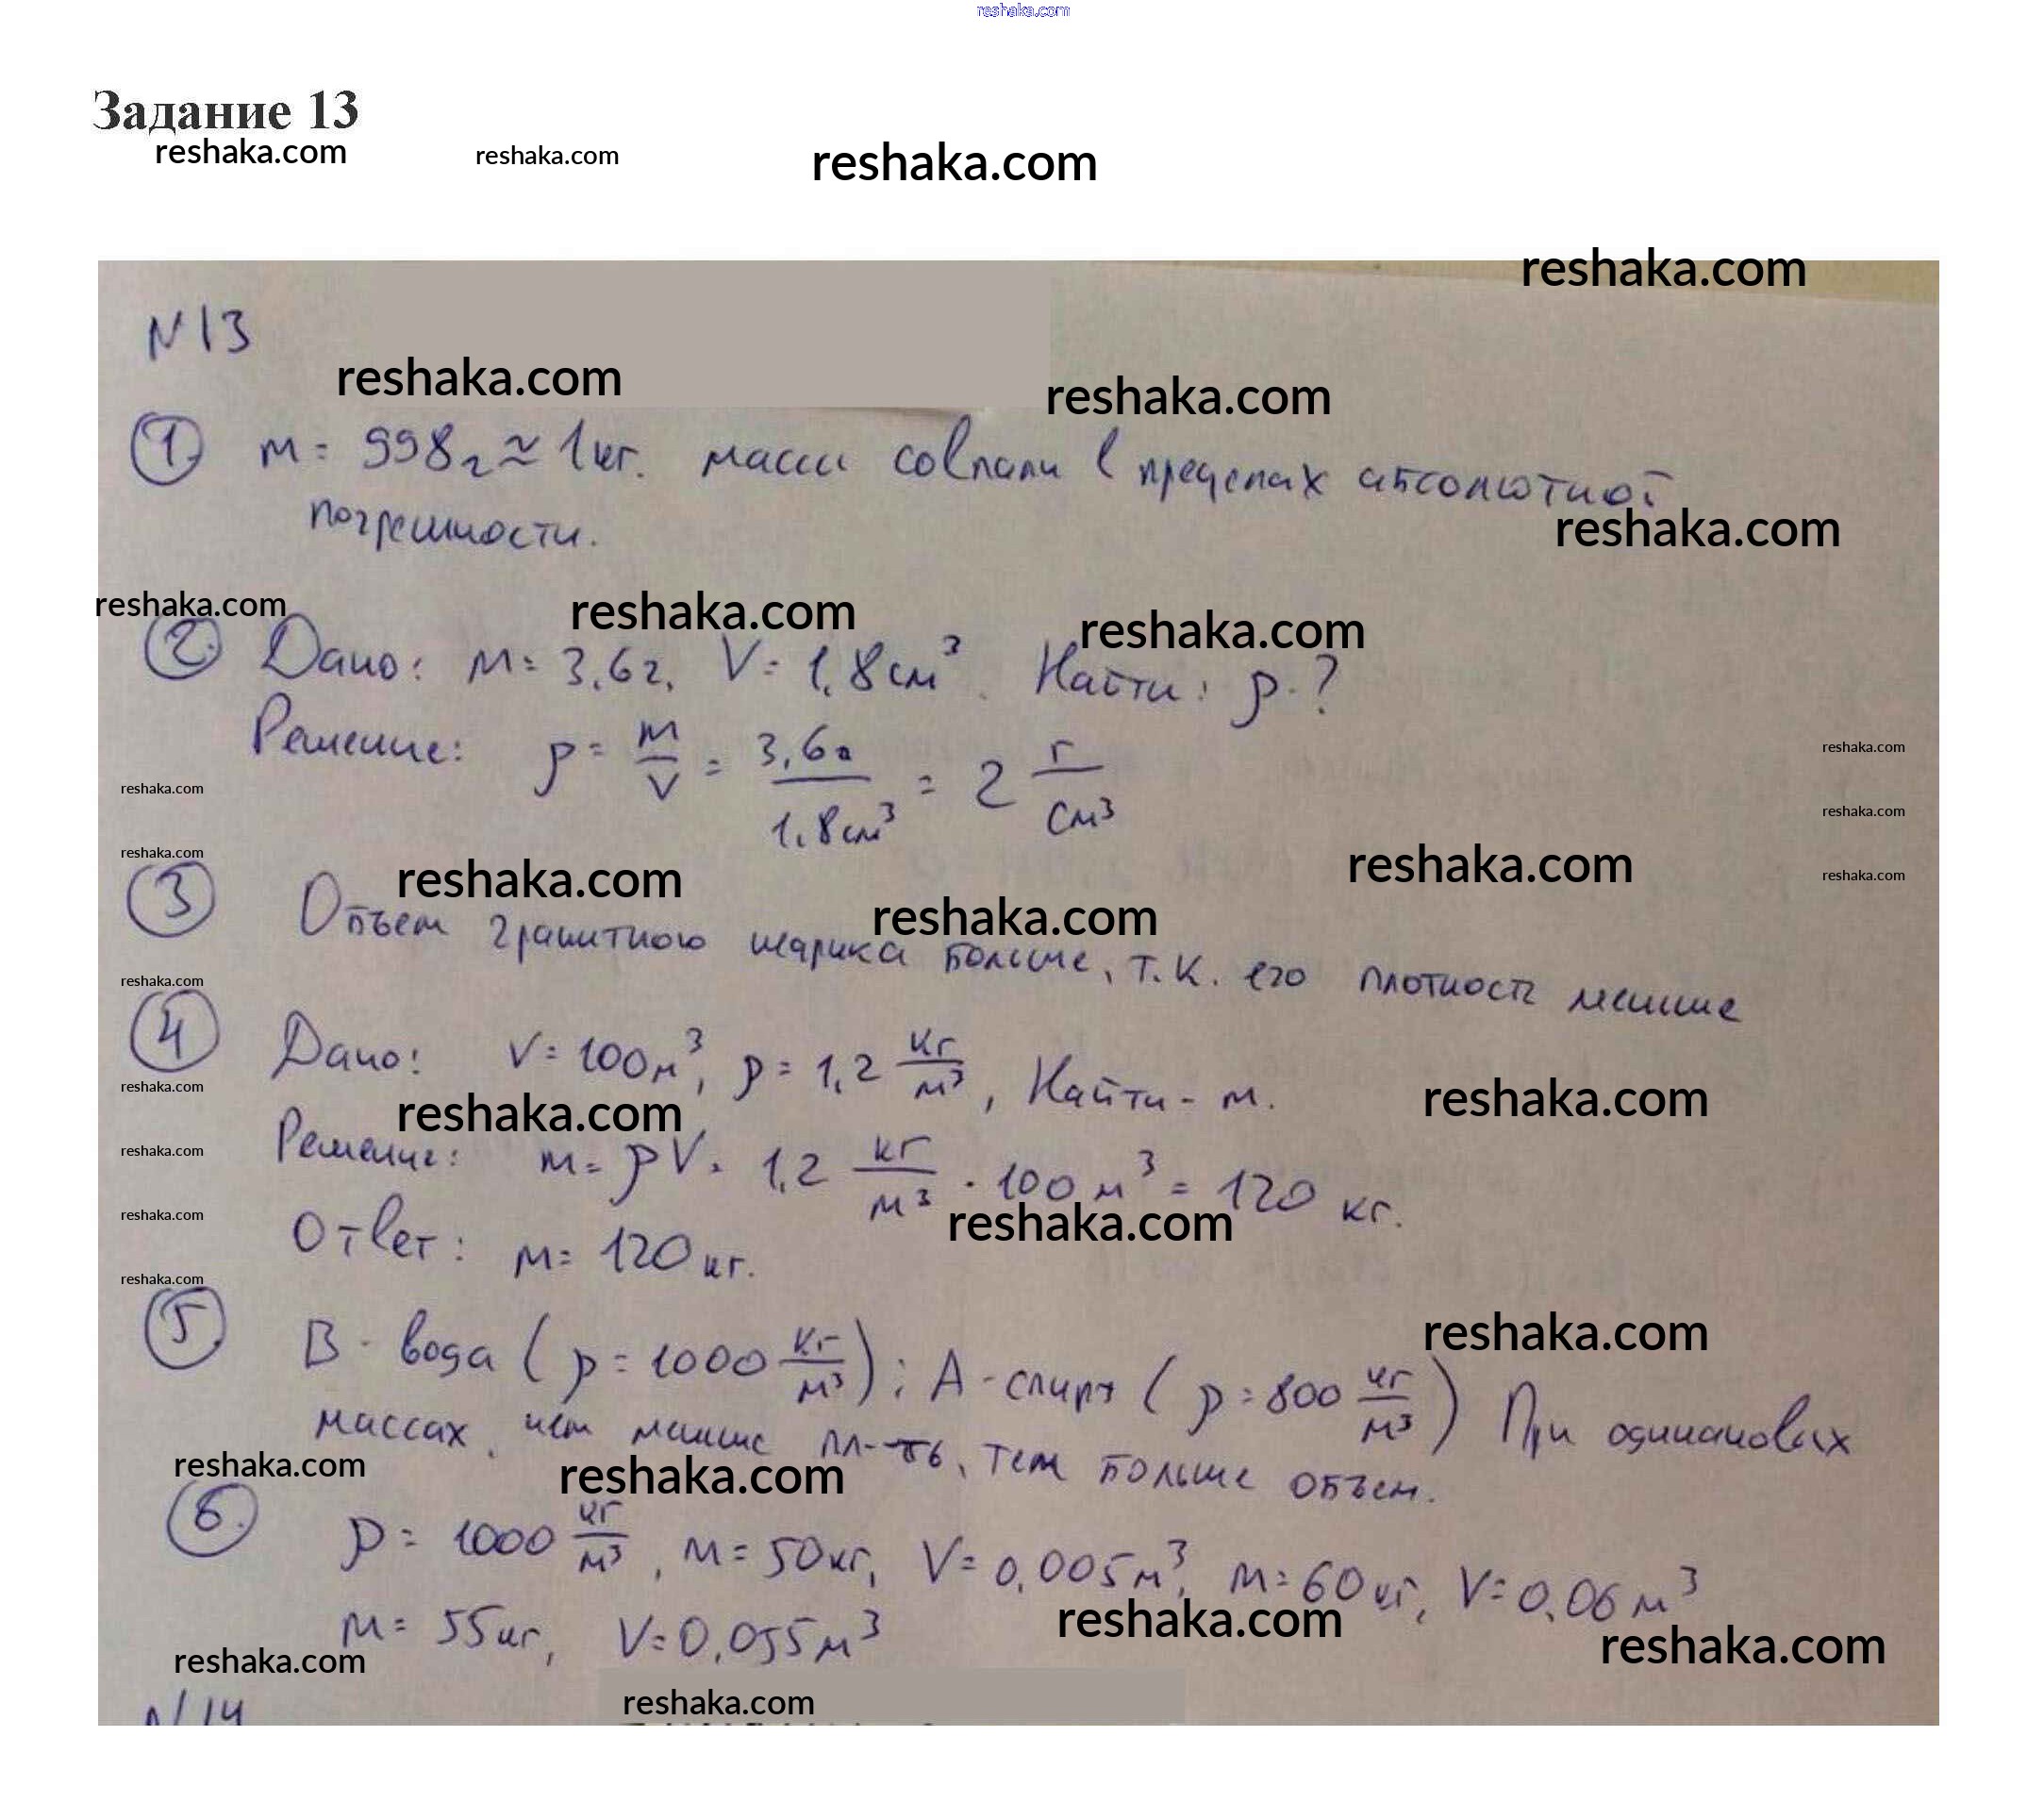 reshaka.com
Задание 13
reshaka.com reshaka.com reshaka.com
reshaka.com
N13
reshaka.com reshaka.com
1. m = 998г ≈ 1кг. массы совпали в пределах абсолютной
погрешности.
reshaka.com
reshaka.com reshaka.com reshaka.com
2. Дано: m = 3,6г, V = 1,8см³. Найти: ρ-?
Решение: ρ = m/V = 3,6г/1,8см³ = 2 г/см³
reshaka.com
reshaka.com
reshaka.com
reshaka.com
reshaka.com reshaka.com reshaka.com reshaka.com
3 Объем гранитного шарика больше, т.к. его плотность меньше
reshaka.com
4 Дано: V = 100м³, ρ = 1,2 кг/м³, Найти - m.
reshaka.com reshaka.com reshaka.com
reshaka.com
Решение: m = ρV = 1,2 кг/м³ · 100 м³ = 120 кг.
reshaka.com reshaka.com
Ответ: m = 120кг.
reshaka.com
5. В - вода (ρ = 1000 кг/м³); А - спирт (ρ = 800 кг/м³) При одинаковых
reshaka.com
массах, чем меньше пл-ть, тем больше объем.
reshaka.com reshaka.com
6. ρ = 1000 кг/м³, m = 50кг, V = 0,005м³, m = 60кг, V = 0,06м³
m = 55кг, V = 0,055м³
reshaka.com reshaka.com
reshaka.com
reshaka.com
N14